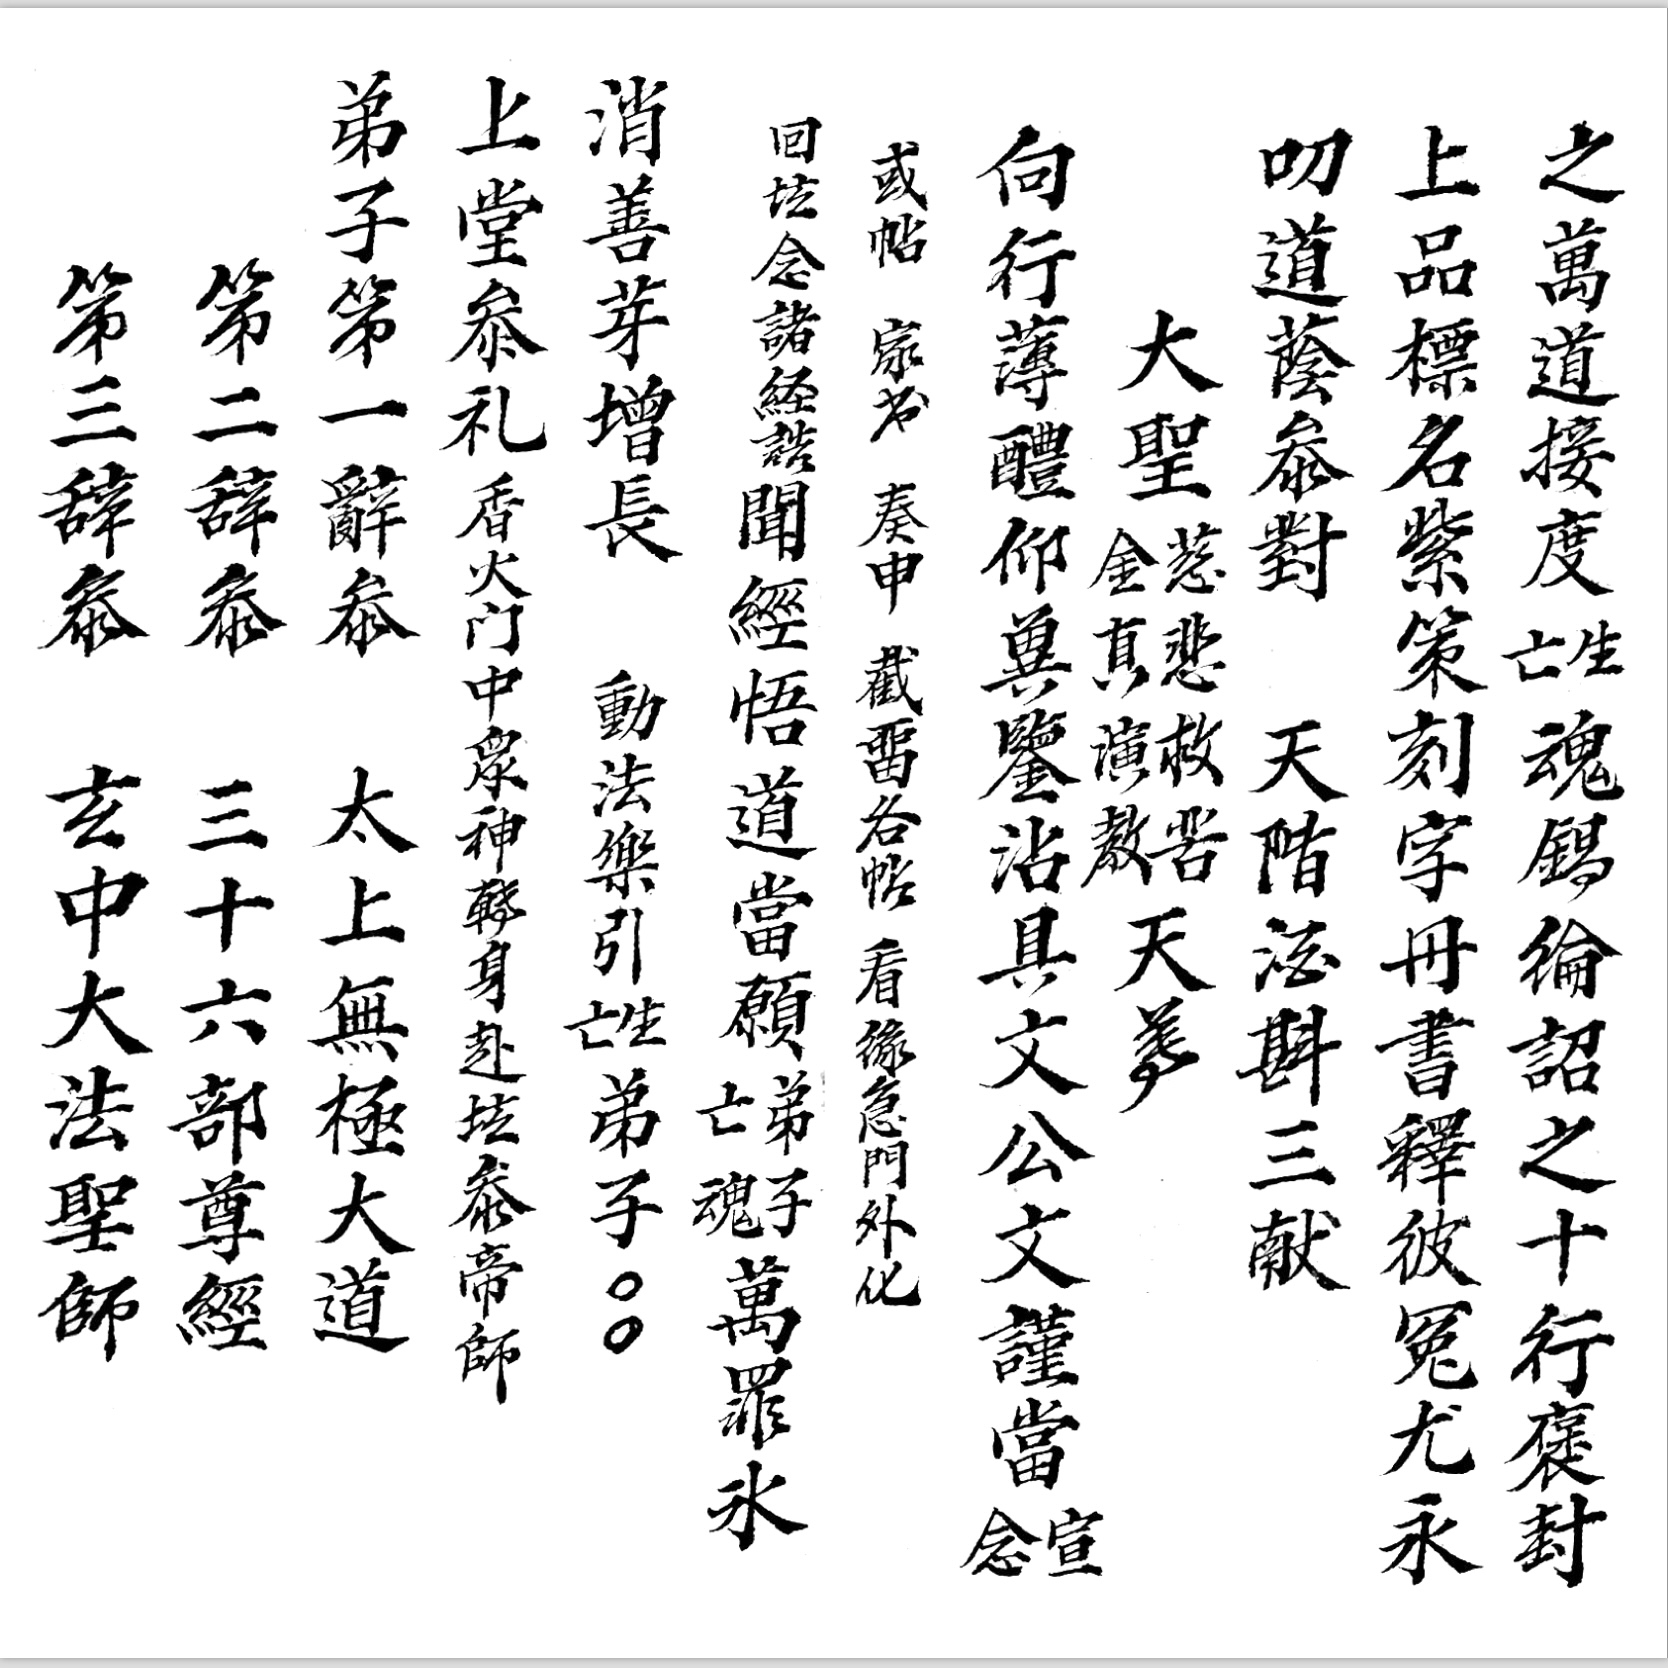 之萬道接度生亡魂錫綸詔之十行褒封
上品標名紫策刻字丹書釋彼冤尤永
叨道蔭叅對 天階酒斟三献
大聖慈悲救苦金真演教天尊
向行薄醴仰兾鑒沾具文公文謹當宣念
或帖 家書 奏申 截畱各帖 看緣急門外化
回坛念諸経誥聞經悟道當願弟子亡魂萬罪氷
消善芽增長 動法樂引生亡弟子〇〇
上堂叅礼香火门中眾神整身赴坛叅帝師
弟子第一辭叅 太上無極大道
第二辞叅 三十六部尊經
第三辞叅 玄中大法聖師